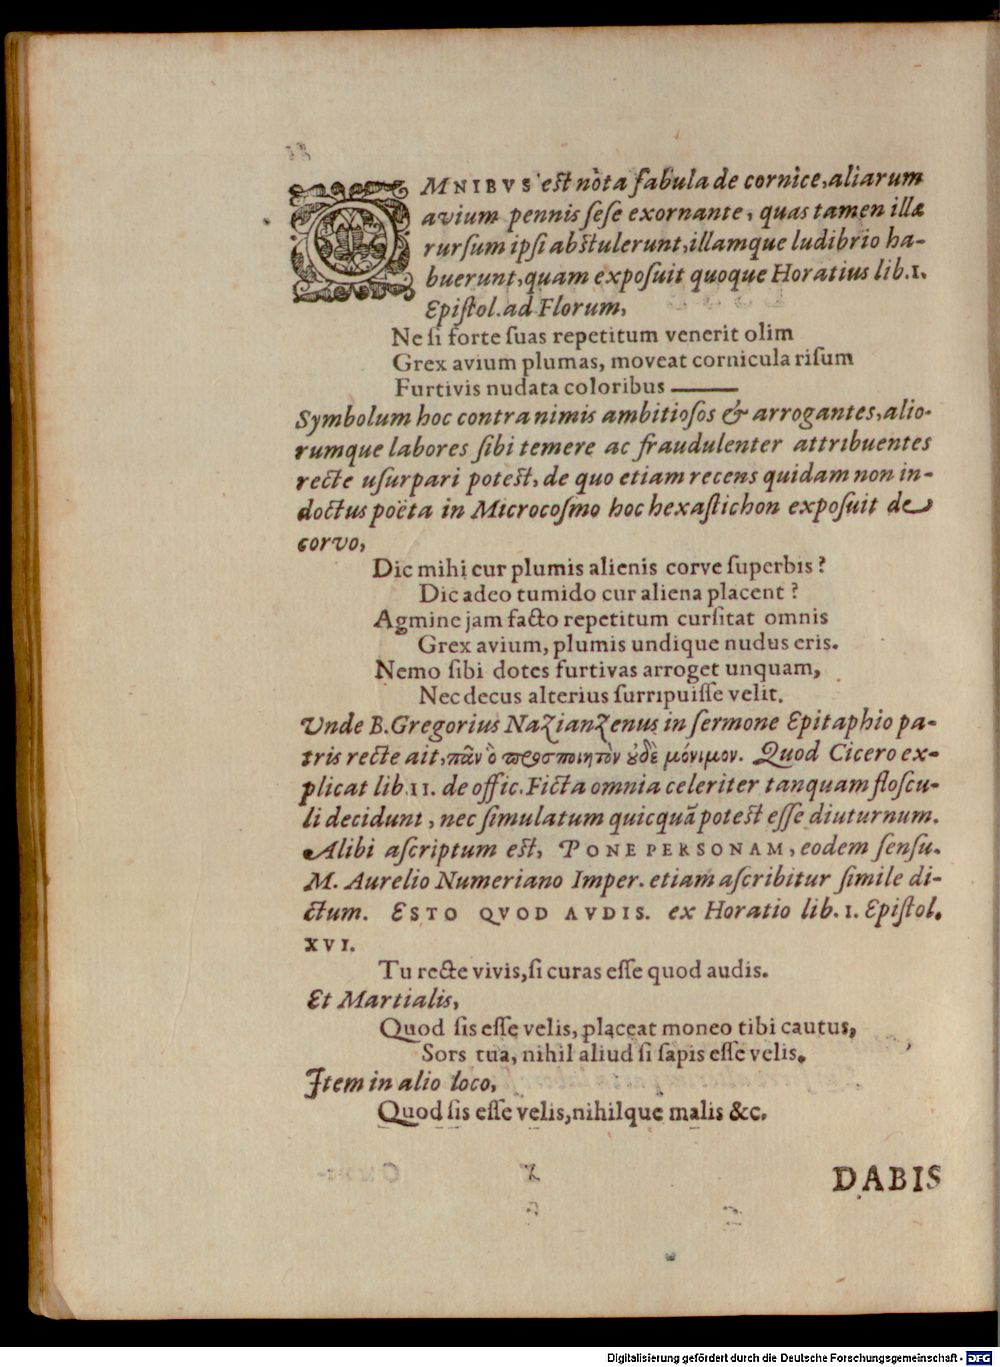 OMNIBVS est nota fabula de cornice, aliarum
avium pennis sese exornante, quas tamen illæ
rursum ipsi abstulerunt, illamque ludibrio ha-
buerunt, quam exposuit quoque Horatius lib. 1.
Epistol. ad Florum,
Ne si forte suas repetitum venerit olim
Grex avium plumas, moveat cornicula risum
Furtivis nudata coloribus ———
Symbolum hoc contra nimis ambitiosos & arrogantes, alio-
rumque labores sibi temere ac fraudulenter attribuentes
recte usurpari potest, de quo etiam recens quidam non in-
doctus poëta in Microcosmo hoc hexastichon exposuit de
corvo,
Dic mihi cur plumis alienis corve superbis?
Dic adeo tumido cur aliena placent?
Agmine jam facto repetitum cursitat omnis
Grex avium, plumis undique nudus eris.
Nemo sibi dotes furtivas arroget unquam,
Nec decus alterius surripuisse velit.
Unde B. Gregorius Nazianzenus in sermone Epitaphio pa-
tris recte ait, πᾶν ὃ προσποιητὸν ȣδὲ μόνιμον. Quod Cicero ex-
plicat lib. 11. de offic. Ficta omnia celeriter tanquam floscu-
li decidunt, nec simulatum quicquã potest esse diuturnum.
Alibi ascriptum est, PONE PERSONAM, eodem sensu.
M. Aurelio Numeriano Imper. etiam ascribitur simile di-
ctum. ESTO QVOD AVDIS. ex Horatio lib. 1. Epistol.
XVI.
Tu recte vivis, si curas esse quod audis.
Et Martialis,
Quod sis esse velis, placeat moneo tibi cautus,
Sors tua, nihil aliud si sapis esse velis.
Item in alio loco,
Quod sis esse velis, nihilque malis &c.
DABIS
Digitalisierung gefördert durch die Deutsche Forschungsgemeinschaft - DFG